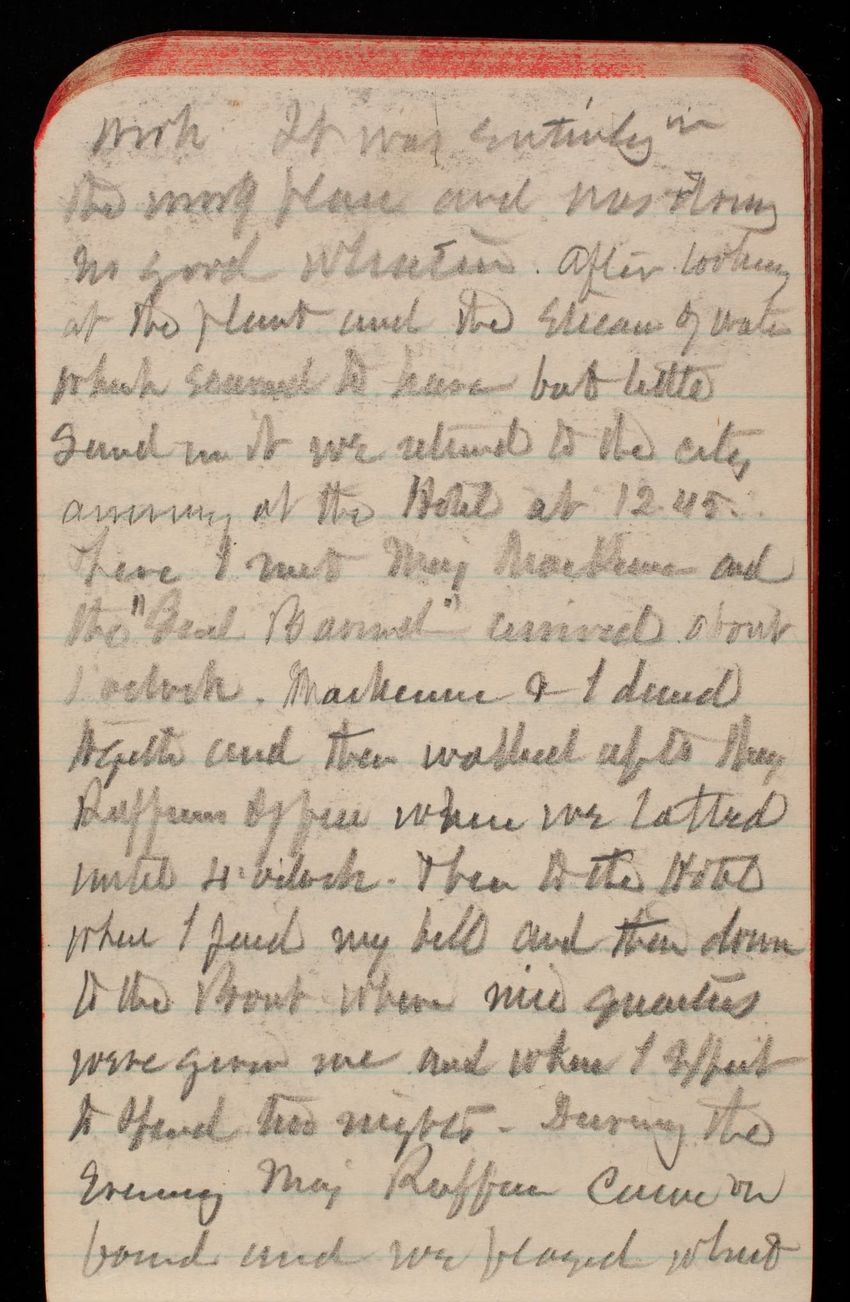 work It was entirely in
the wrong place and was doing
no good whatever. After looking
at the plant and the stream of water
which seemed to have but little
sand in it we returned to the city
arriving at the Hotel at 12.45.
Here I met Maj Mackenzie and
the " Barnard" arrived about
1 oclock. Mackenzie & I dined
together and then walked up to Maj
Ruffners Office where we lotted
until 4 oclock. Then to the Hotel
where I paid my bill and then down
to the Boat where nice quarters
were given me and where I expect
to spend two nights - During the
Evening Maj Ruffner came on
board and we played whist